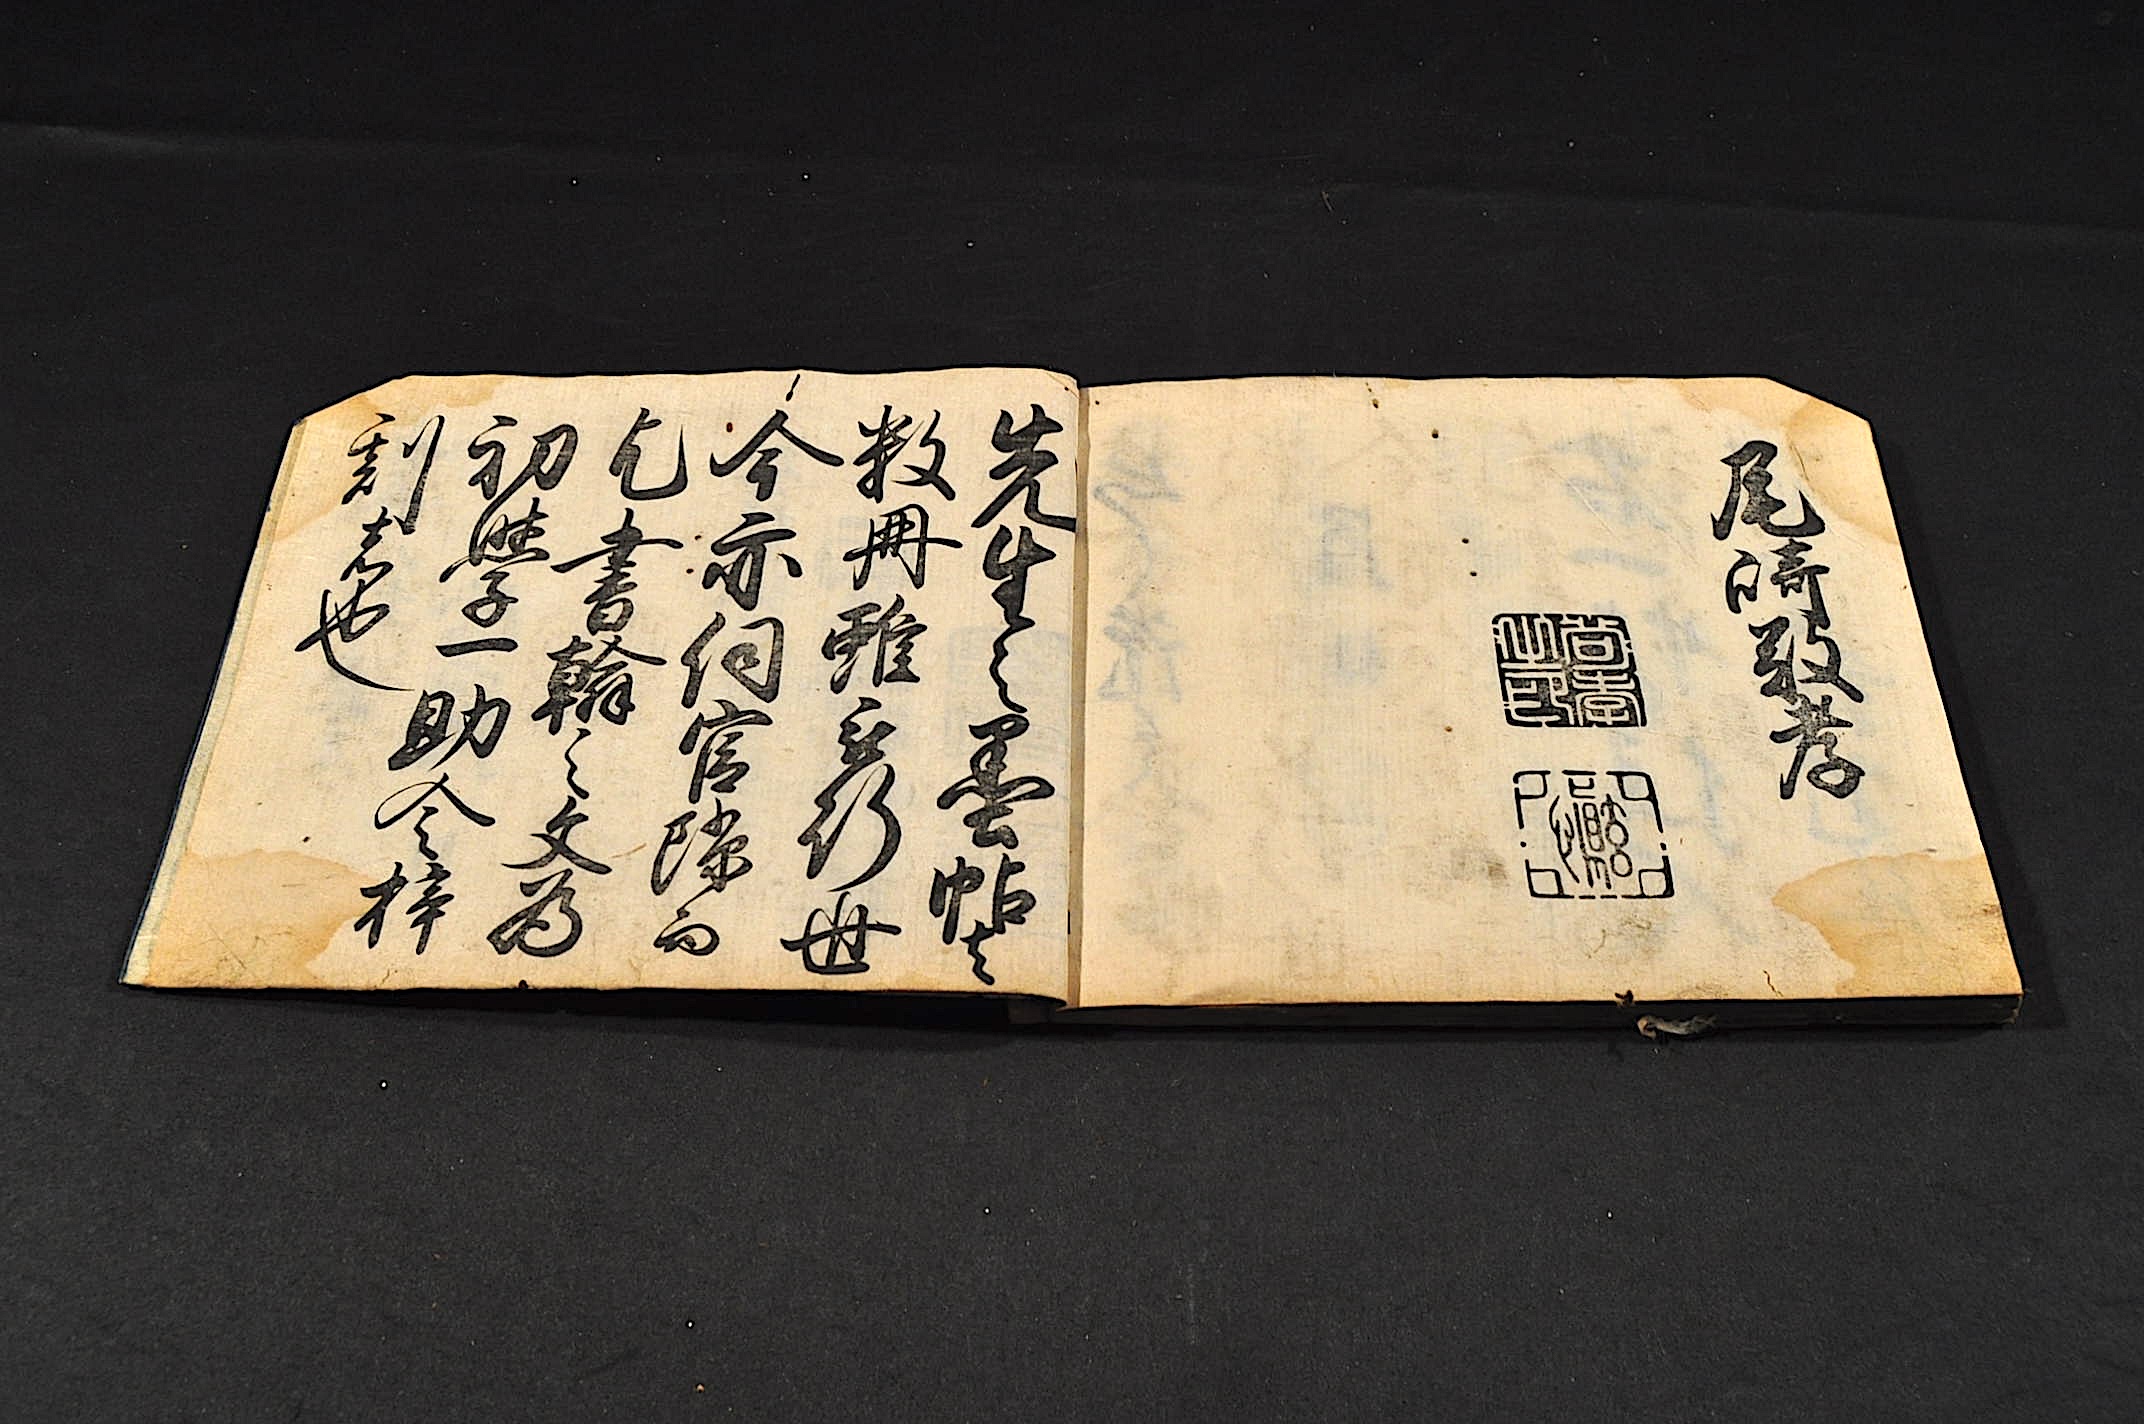 尾崎敬孝
先生之墨帖
数冊雖行世
今亦伺官隙而
乞書翰之文為
初學一助令梓
刻者也